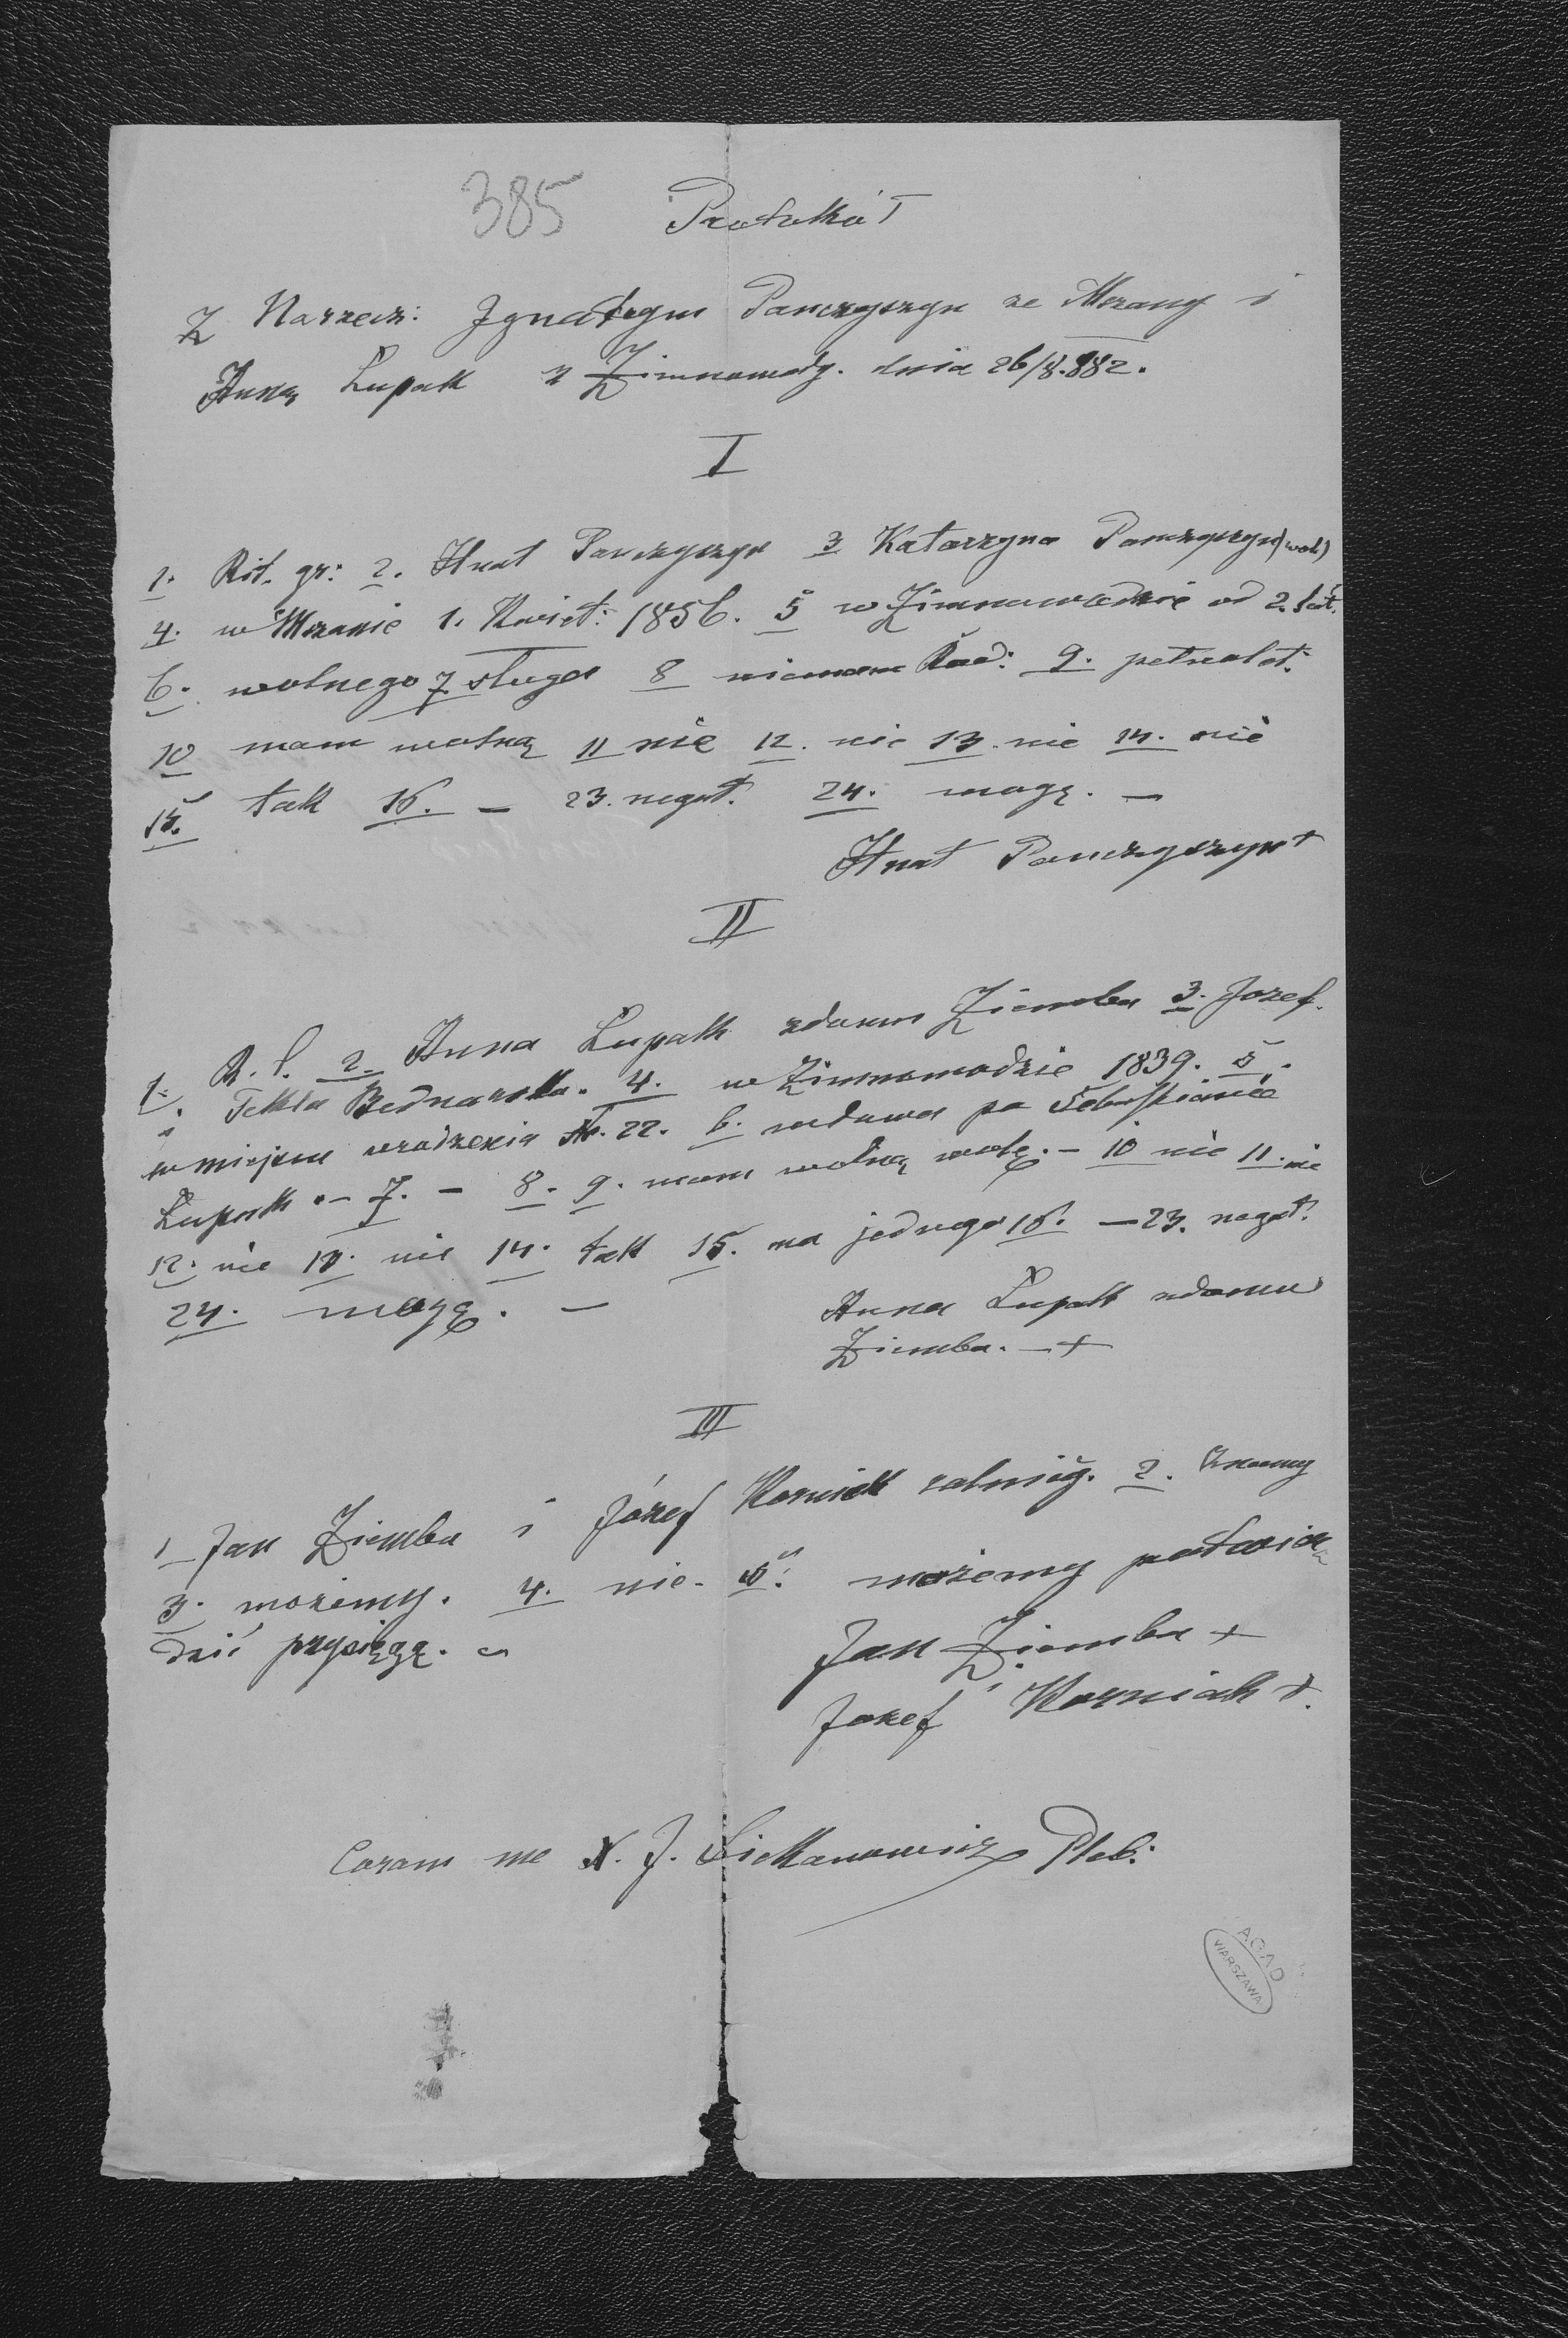 385 Protokół
Z Narzecz: Ignatego Panczyszyn ze Mszany i
Anną Łupak z Zimnowody. dnia 26/8.882.
I
1. Rit. gr: 2. Hnat Panczyszyn 3 Katarzyna Panczyszyn
4. w Mszanie 1. Kwiet: 1856. 5 w Zimnowodzie od 2. lat.
6. wolnego 7 sługa 8 niemam 9. pełnolet:
10 mam wolną 11 nie 12. nie 13. nie 14. nie
15. tak 16. — 23. negat. 24. mogę. —
Hnat Panczyszyn +
II
1. R. l. 2. Anna Łupak zdomu Ziemba 3. Jozef.
i Tekla Bednarska. 4. w Zimnowodzie 1839. 5.
w miejscu urodzenia N. 22. 6. wdowa po Sebastianie
Łupak. – 7. – 8. 9. mam wolną wolę. – 10 nie 11. nie
12. nie 13. nie 14. tak 15. na jednego 16. — 23. negat.
24. mogę. —
Anna Łupak zdomu
Ziemba. — +
III
1 Jan Ziemba i Józef Korniak rolnicy. 2. Znamy
3. możemy. 4. nie. 5. możemy potwier
dzić przysięgą.
Jan Ziemba +
Jozef Korniak +.
Coram me X. J. Sickanowicz Pleb:
AGAD
WARSZAWA